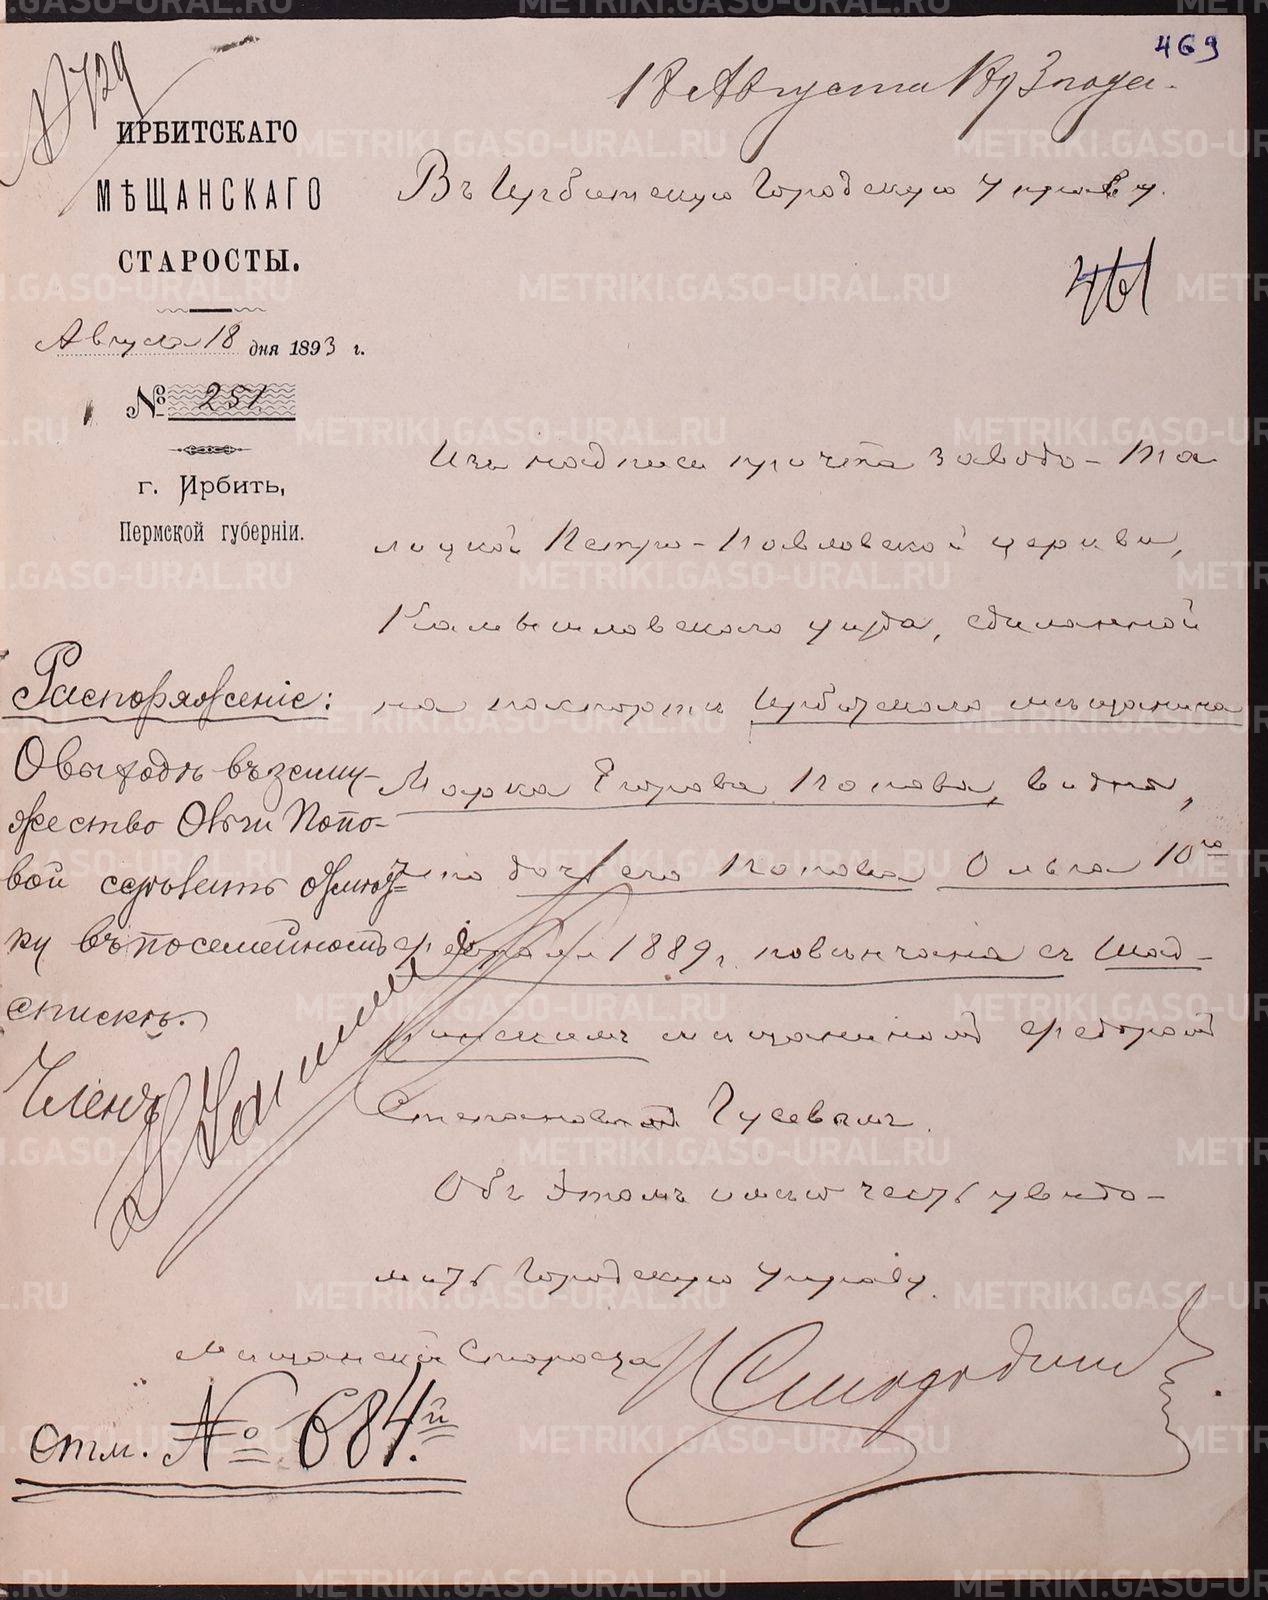 469
№ 729
18 Августа 1893 года.
ИРБИТСКАГО
МѢЩАНСКАГО
СТАРОСТЫ.
Августа 18 дня 1893 г.
№ 251
г. Ирбить,
Пермской губерніи.
Въ Ирбитскую Городскую Управу.
461
Изъ надписи причта Заводо-Та
лицкой Петро-Павловской церкви,
Камышловскаго уѣзда, сдѣланной
на паспортѣ Ирбитскаго мѣщанина
Марка Егорова Попова, видно,
что дочь его Попова Ольга 10го
февраля 1889 г. повѣнчана съ Шад-
ринскимъ мѣщаниномъ Федоромъ
Степановымъ Гусевымъ.
Объ этомъ имѣю честь увѣдо-
мить Городскую Управу.
Мѣщанскій Староста
Распоряженіе:
О выходѣ въ заму-
жество Ольги Попо-
вой сдѣлать отмѣт-
ку въ посемейномъ
спискѣ.
Членъ
отм. № 684.й
METRIKI.GASO-URAL.RU